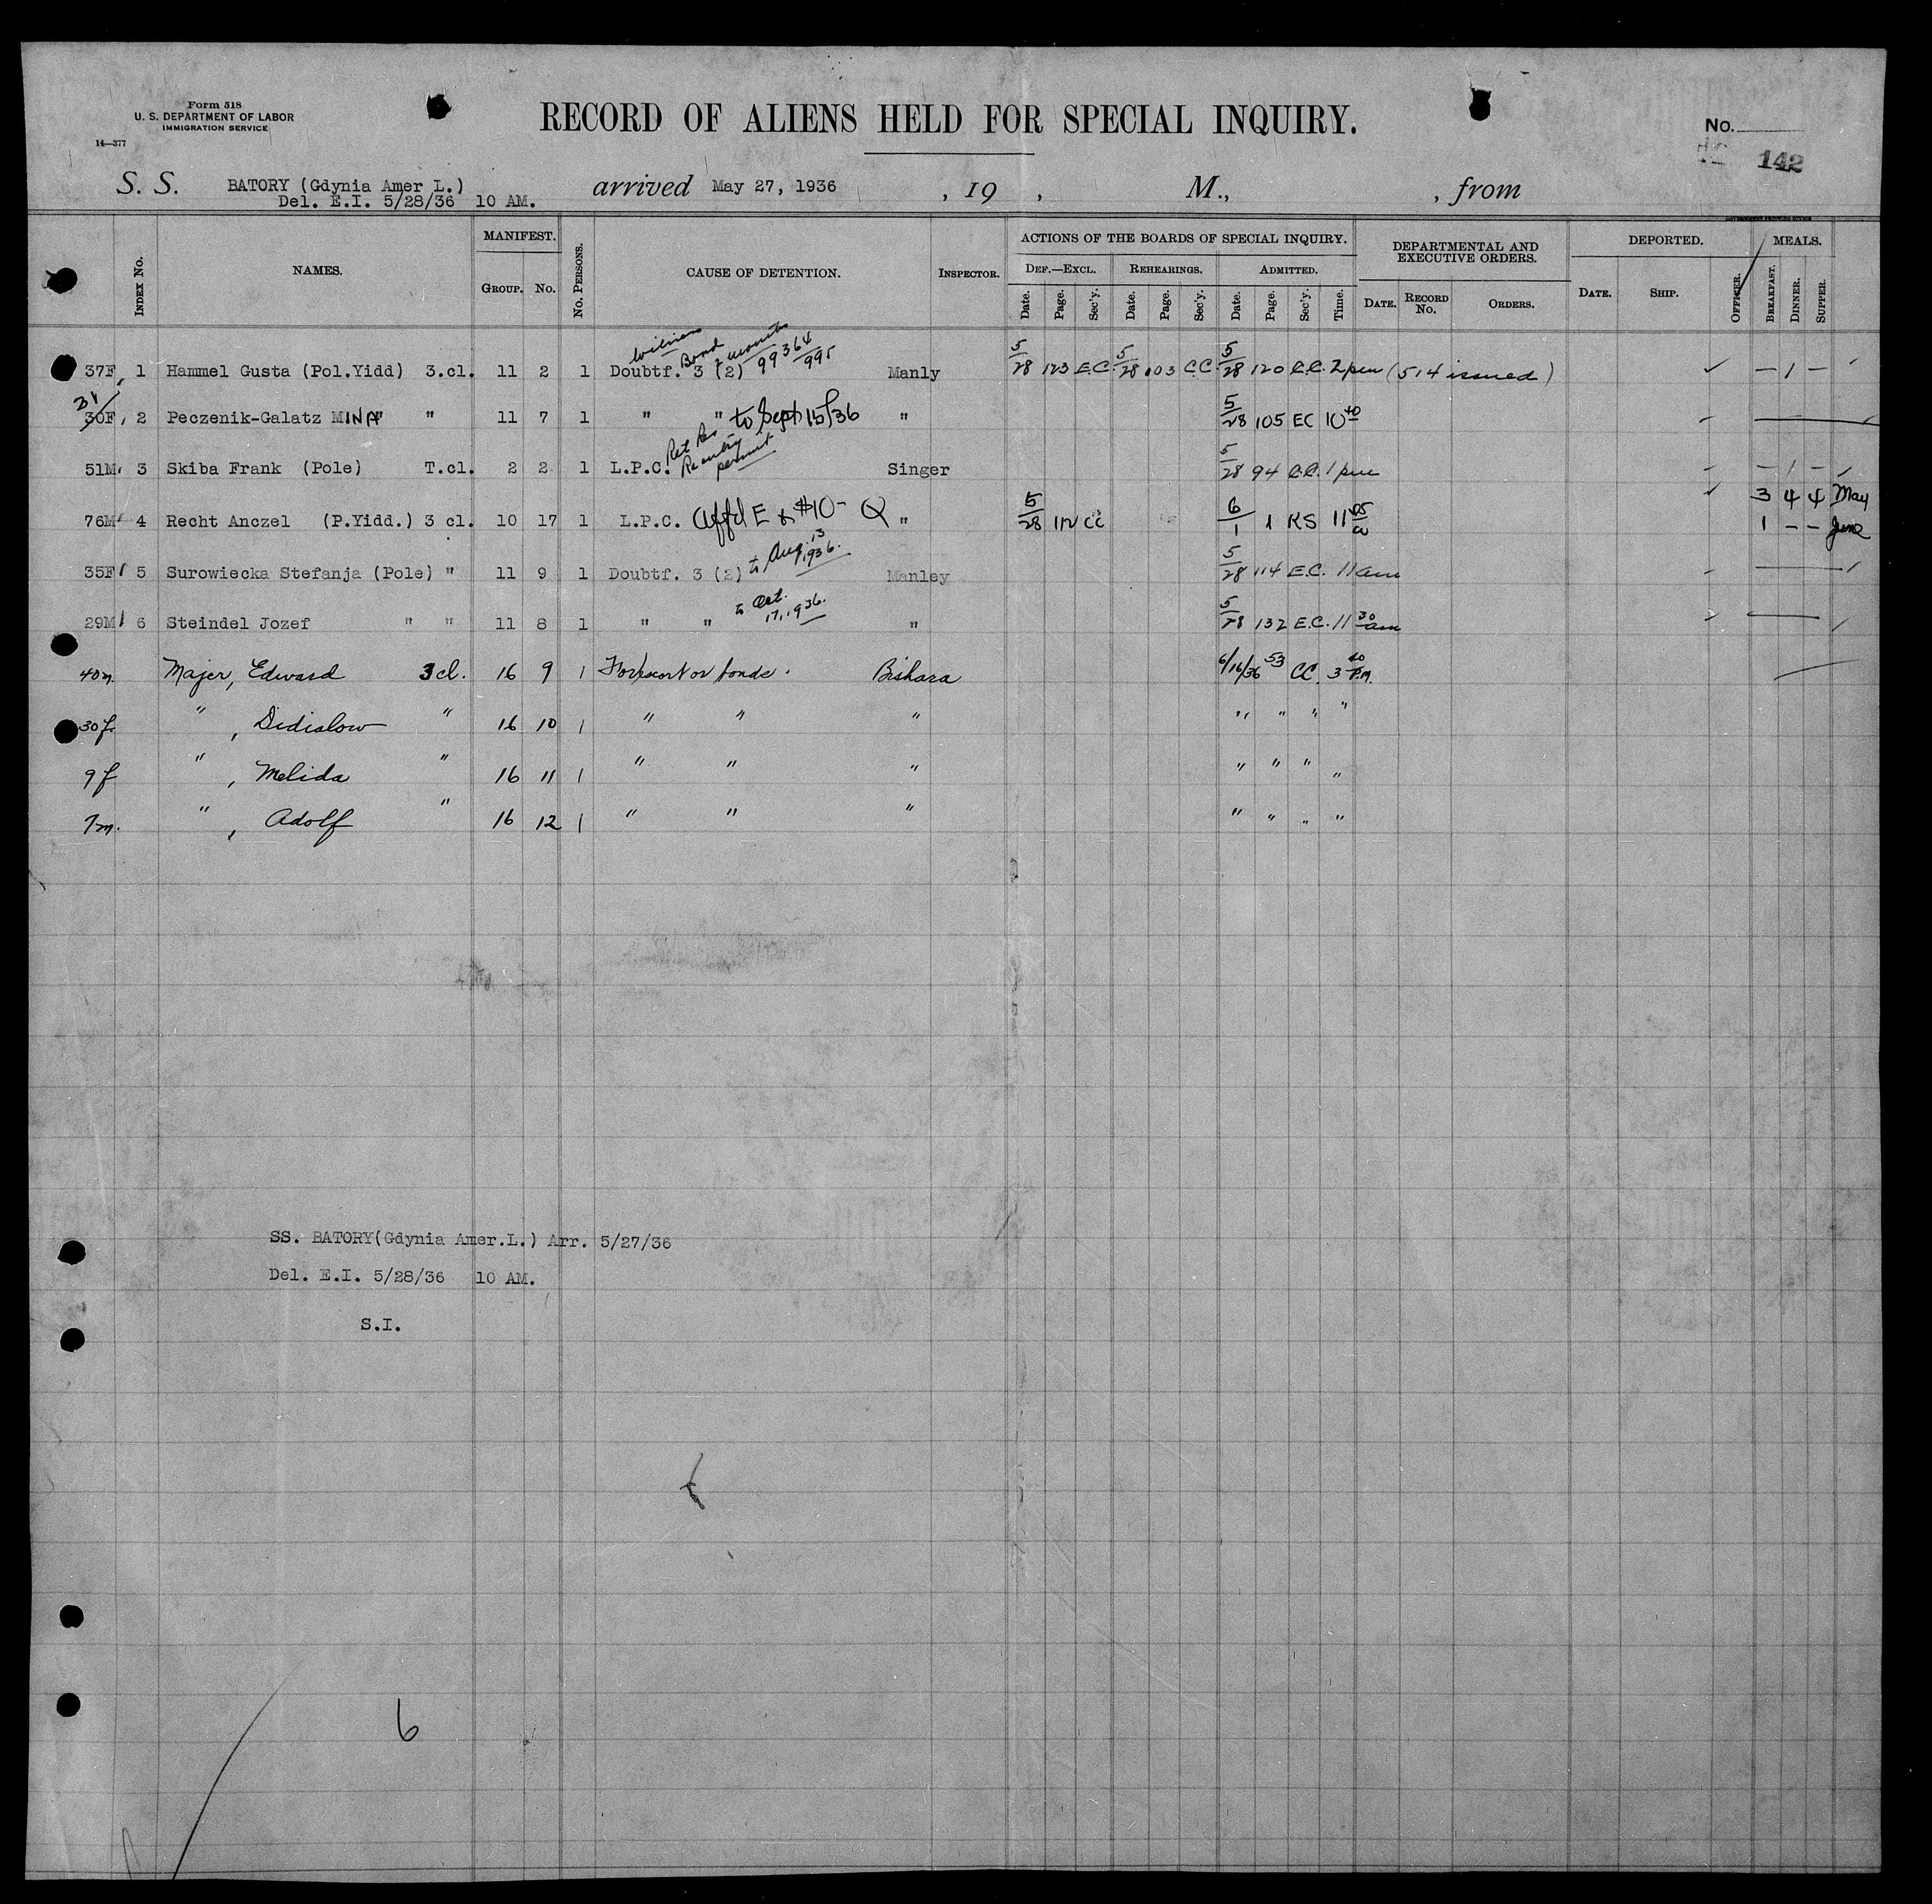 Form 518
U. S. DEPARTMENT OF LABOR
IMMIGRATION SERVICE
14—377
RECORD OF ALIENS HELD FOR SPECIAL INQUIRY.
No.
142
S. S. BATORY (Gdynia Amer L.) arrived May 27, 1936 , 19 , M., , from
Del. E.I. 5/28/36 10 AM.
INDEX No. NAMES. MANIFEST. GROUP. No. No. PERSONS. CAUSE OF DETENTION. INSPECTOR. ACTIONS OF THE BOARDS OF SPECIAL INQUIRY. DEF.—EXCL. Date. Page. Sec'y. REHEARINGS. Date. Page. Sec'y. ADMITTED. Date. Page. Sec'y. Time. DEPARTMENTAL AND EXECUTIVE ORDERS. DATE. RECORD No. ORDERS. DEPORTED. DATE. SHIP. OFFICER. MEALS. BREAKFAST. DINNER. SUPPER.
Bond 99364/995
37F 1 Hammel Gusta (Pol.Yidd) 3.cl. 11 2 1 Doubtf. 3 (2) Manly 5/28 123 E.C. 5/28 103 C.C. 5/28 120 C.C. 2 pm (514 issued) — 1 —
31
30F 2 Peczenik-Galatz MINA " " 11 7 1 " " to Sept 15/36 " 5/28 105 EC 10 40
Reentry permit
51M 3 Skiba Frank (Pole) T.cl. 2 2 1 L.P.C. Singer 5/28 94 C.C. 1 pm — 1 —
3 4 4 May
76M 4 Recht Anczel (P.Yidd.) 3 cl. 10 17 1 L.P.C. Aff'd E & $10- Q " 5/28 112 CC 6/1 1 KS 11 05 a
1 — — June
35F 5 Surowiecka Stefanja (Pole) " 11 9 1 Doubtf. 3 (2) to Aug. 13 1936. Manley 5/28 114 E.C. 11 am
29M 6 Steindel Jozef " " 11 8 1 " " to Oct. 17, 1936. " 5/28 132 E.C. 11 30 am
40m Majer, Edward 3 cl. 16 9 1 For escort or funds. Bishara 6/16/36 53 CC. 3 40 P.M.
30f " , Didialow " 16 10 1 " " " " " " "
9f " , Melida 16 11 1 " " " " " " "
7m. " , Adolf " 16 12 1 " " " " " " "
SS. BATORY(Gdynia Amer.L.) Arr. 5/27/36
Del. E.I. 5/28/36 10 AM.
S.I.
6